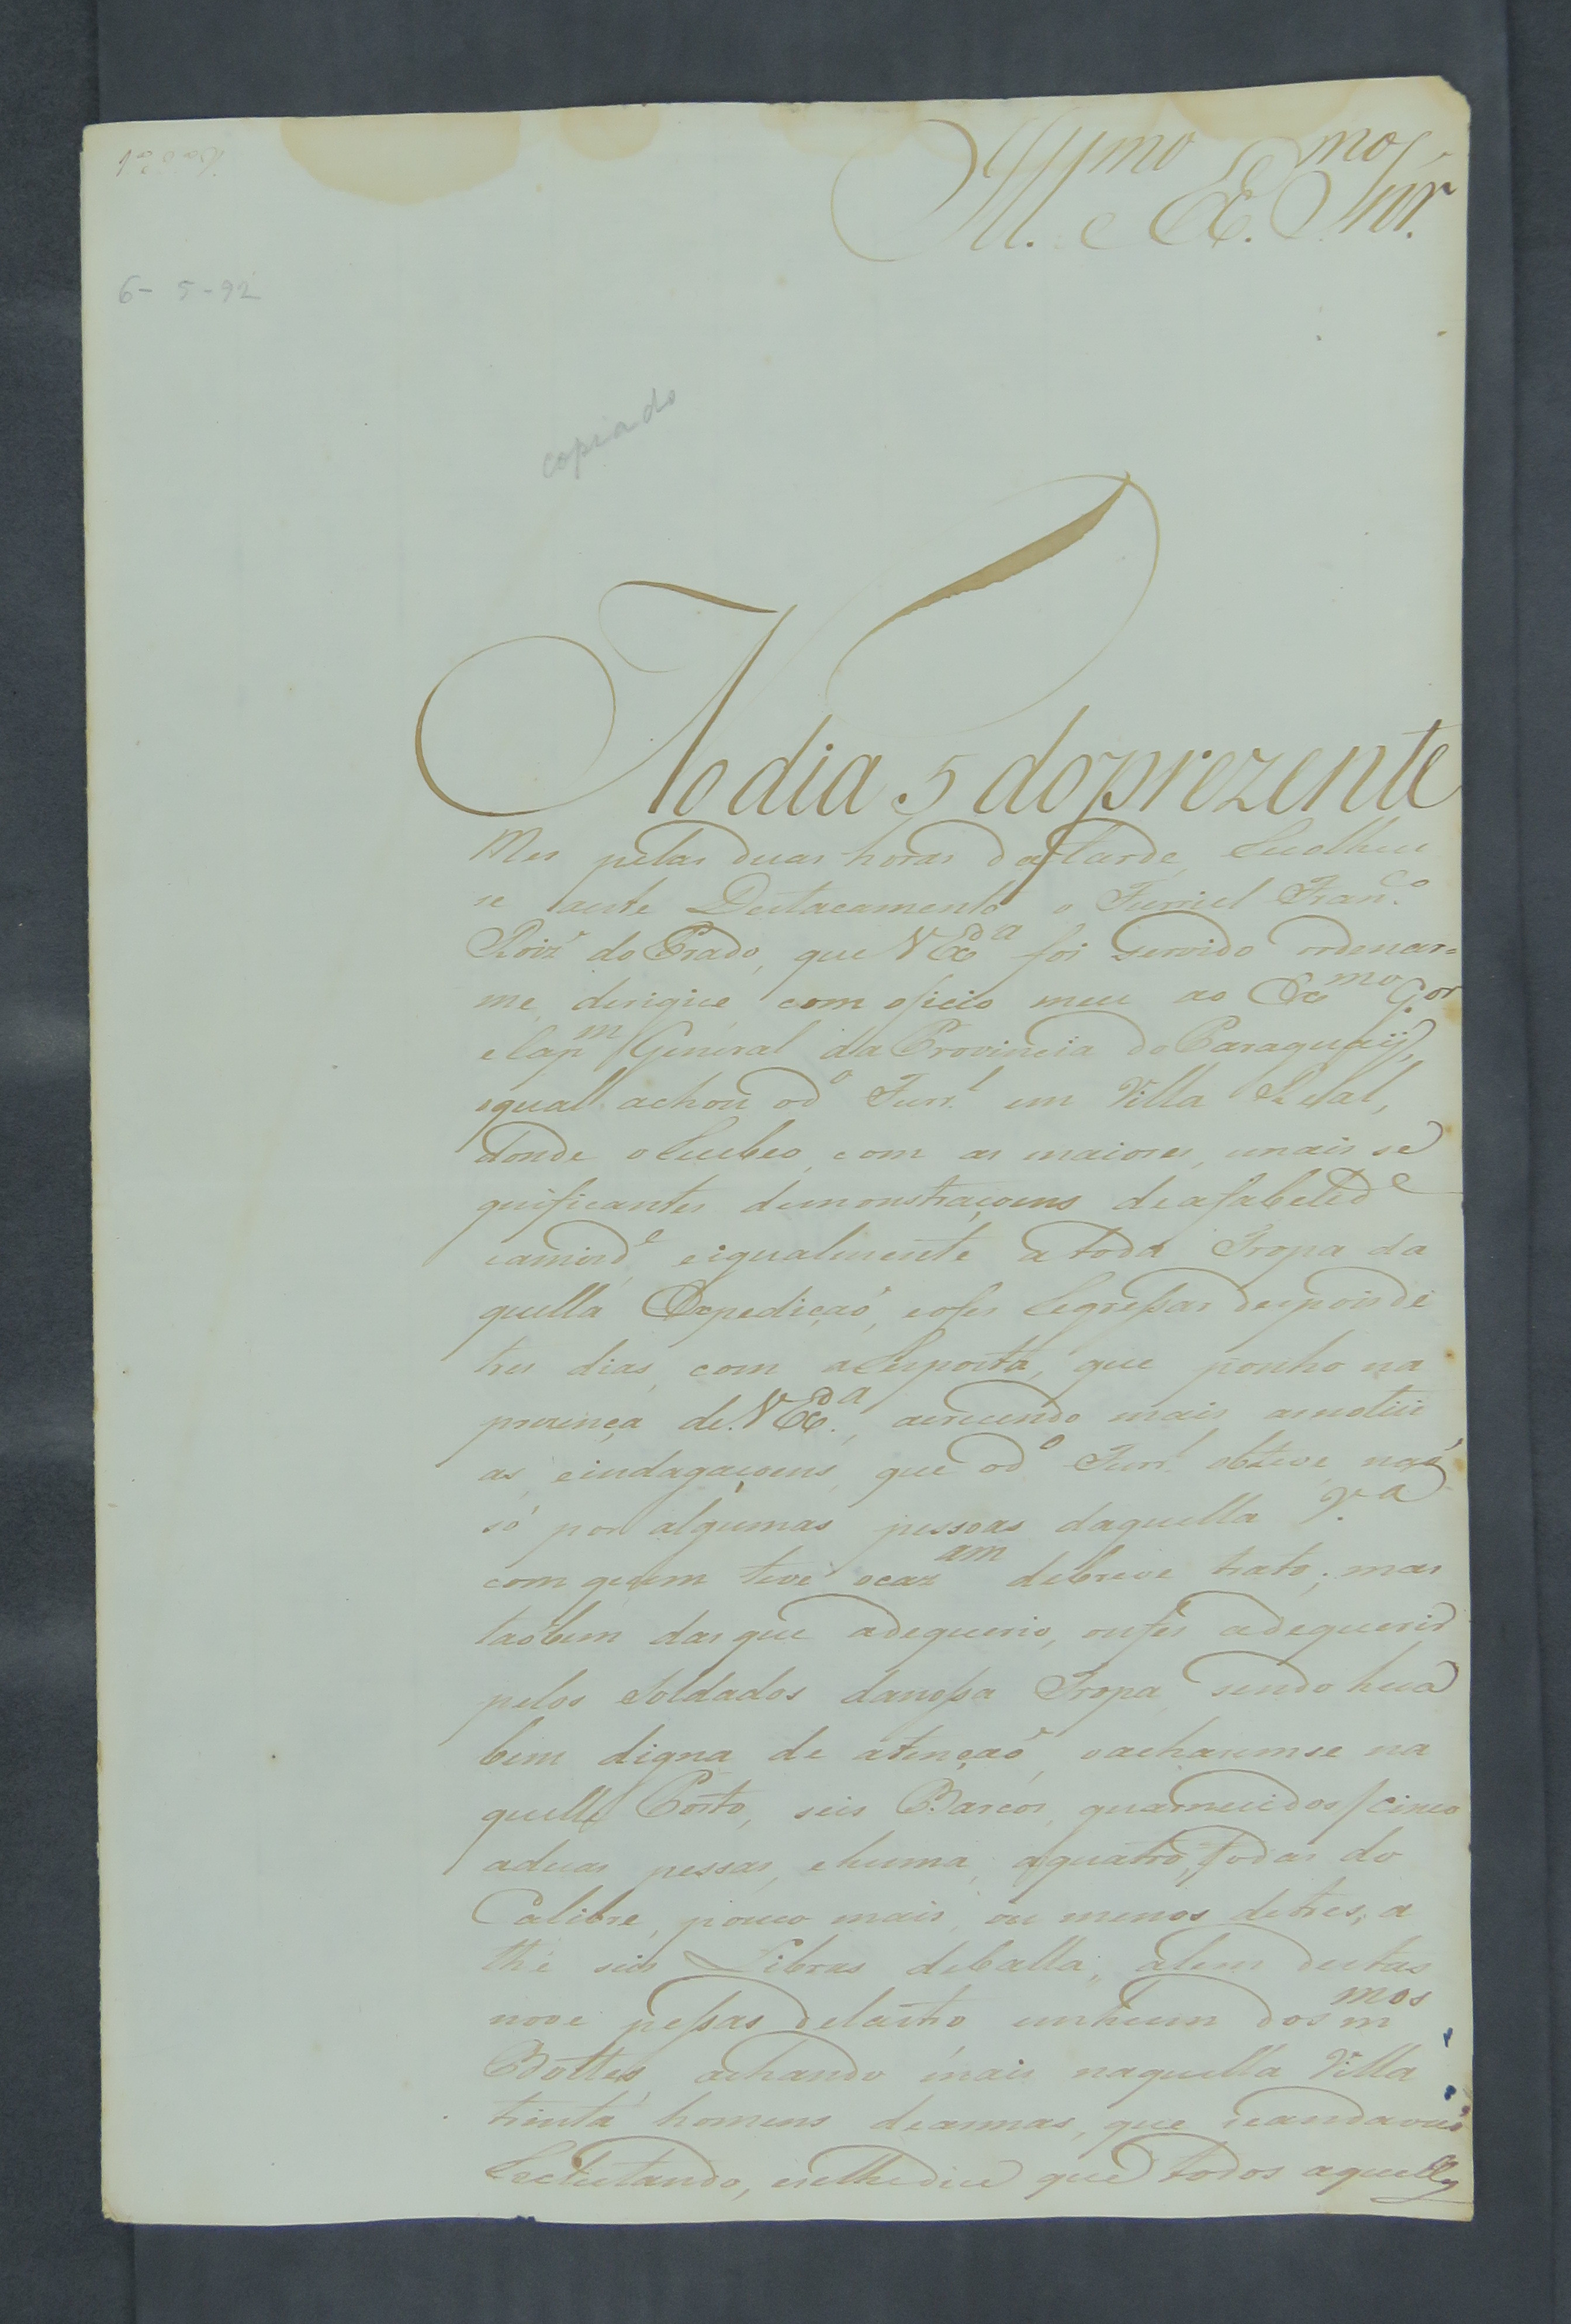 Ill.mo e Ex.mo Snr.
6-5-92
copiado
No dia 5 do prezente
Mes pelas duas horas da tarde, Recolheu
se aeste Destacamento o Furriel Fran.co
Roiz' do Prado, que V Ex.a foi servido ordenar=
me, derigice com oficio meu ao Ex.mo G.or
e Cap.m General da Provincia do Paraguaÿ,
oqual achou od.o Furr.l em Villa Real,
donde oRecebeo, com as maiores, emais se
gnificantes demonstraçoens de afabelid.e
eamizd.e, eigualmente atoda Tropa da
quella Expediçaõ, eofes Regreſsar despois de
tres dias, com aResposta, que ponho na
prezença de V Ex.a, acrecendo mais asnotici
as, eindagaçoens, que od.o Furr.l obteve, naõ
só por algumas pessoas daquella V.a
com quem teve ocaz.am debreve trato; mas
taõbem das que adequerio, oufes adequerir
pelos Soldados danoſsa Tropa, sendo hua
bem digna de atençaõ, oacharemse na
quelle Porto, seis Barcos, guarnecidos/cinco
aduas pessas, ehuma, aquatro,/todas do
Calibre, pouco mais, ou menos detres, a
thé seis Libras deballa, alem destas
nove peſsas delastro emhum dos m.mos
Bottes, achando mais naquella Villa
trinta homens dearmas, que seandavaõ
Recrutando, eselhedice que todos aquelles